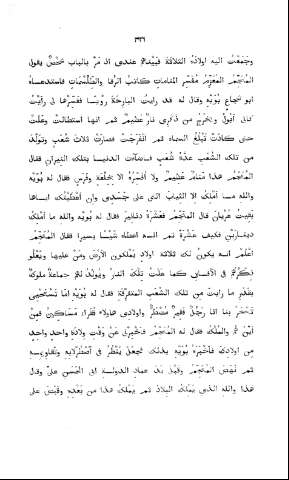 ٣٢٦
وجمعت اليه اولاده الثلاثة فبينما هم عندى اذ مرّ بالباب شخص يقول
المنجّم المعزّم مفسّر المنامات كاتب الرقا والطلّسمات فاستدعاه
ابو شجاع بُويَه وقال له قد رايت البارحة رويا ففسّرها لى رأيت
كانى أبول ويخرج من ذكرى نار عظيمة ثم انها استطالت وعلت
حتى كادت تبلغ السماء ثم انفرجت فصارت ثلاث شعب وتولّد
من تلك الشعب عدّة شعب فاضآت الدنيا بتلك النيران فقال
المنجّم هذا منام عظيم ولا أفسّره الا بخلعة وفرس فقال له بُويَه
والله ما أملك الا الثياب التى على جسدى وان أعطيتك اياها
بقيت عريان قال المنجّم فعشرة دنانير فقال له بُويَه والله ما أملك
دينارين فكيف عشرة ثم انه اعطاه شيئا يسيرا فقال المنجّم
اعلم انه يكون لك ثلاثة اولاد يملكون الارض ومن عليها ويعلو
ذكرهم فى الآفاق كما علت تلك النار ويولد لهم جماعة ملوك
بقدر ما رايت من تلك الشعب المتفرقة فقال له بُويَه اما تستحيى
تسخر بنا انا رجل فقير مضطرّ واولادى هولاء فقراء مساكين فمن
أين لهم والملك فقال له المنجّم فأخبرنى عن وقت ولادة واحد واحد
من اولادك فأخبره بُويَه بذلك فجعل ينظر فى اصطرلابه وتقاويمه
ثم نهض المنجّم وقبّل يد عماد الدولة ابى الحسن على وقال
هذا والله الذى يملك البلاد ثم يملك هذا من بعده وقبض على